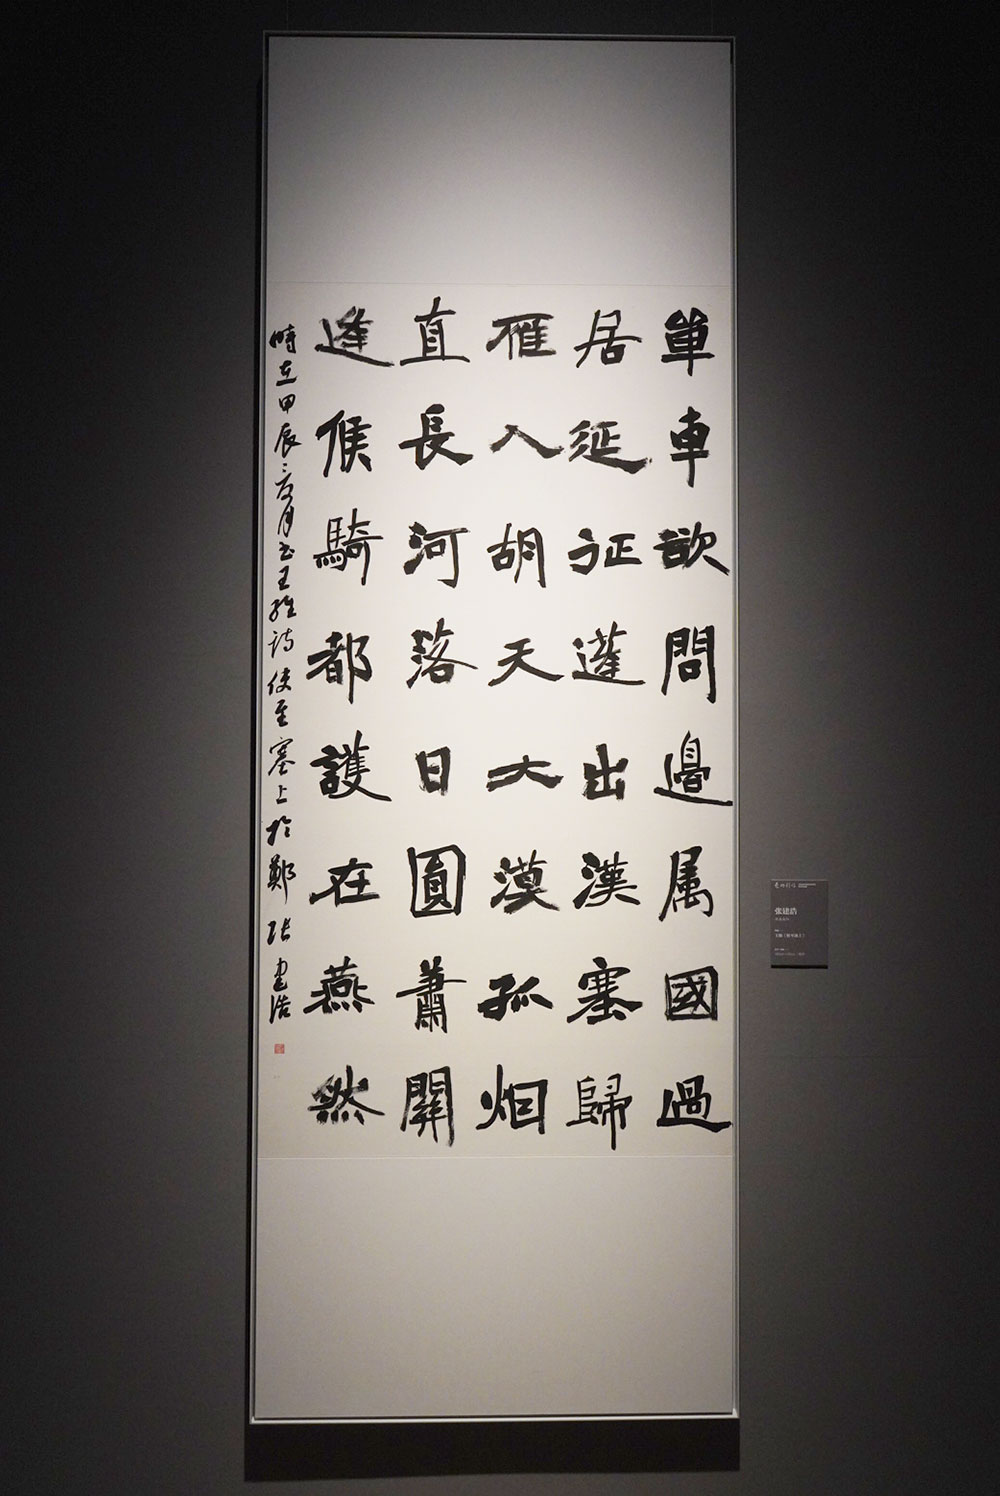 單車欲問邊属國過
居延征蓬出漢塞歸
雁入胡天大漠孤烟
直長河落日圓蕭關
逢候騎都護在燕然
時在甲辰三友月書王維詩使至塞上於鄭張建浩
张建浩